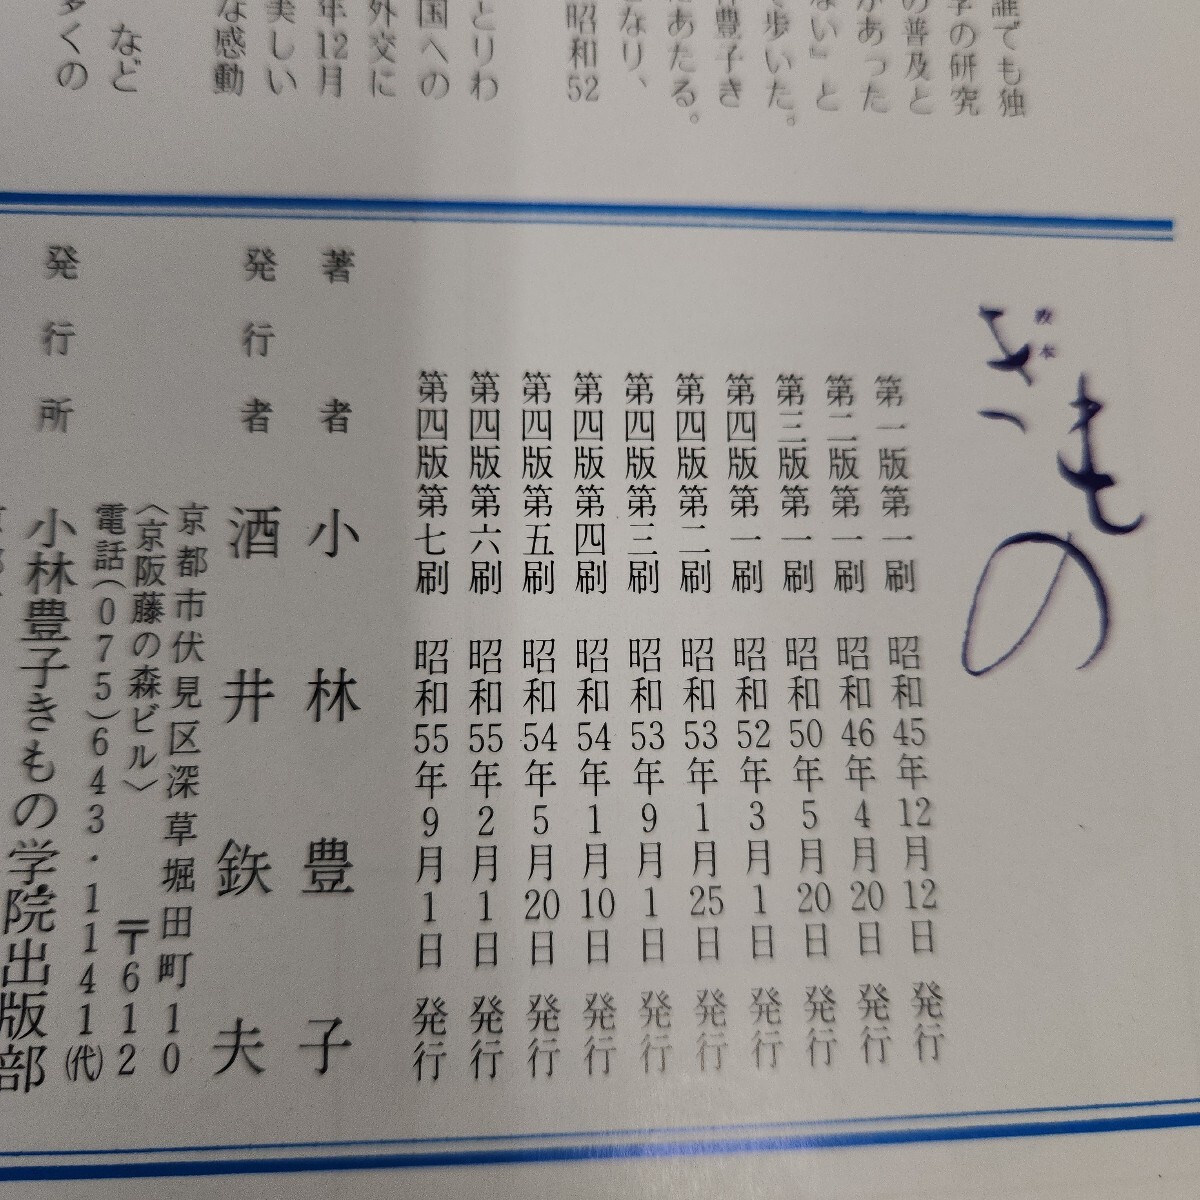 誰でも独
学の研究
の普及と
があった
ない』と
で歩いた。
豊子き
にあたる。
なり、
昭和52
とりわ
国への
外交に
年12月
美しい
な感動
など
多くの
教本
きもの
第一版第一刷 昭和45年12月12日 発行
第二版第一刷 昭和46年4月20日 発行
第三版第一刷 昭和50年5月20日 発行
第四版第一刷 昭和52年3月1日 発行
第四版第二刷 昭和53年1月25日 発行
第四版第三刷 昭和53年9月1日 発行
第四版第四刷 昭和54年1月10日 発行
第四版第五刷 昭和54年5月20日 発行
第四版第六刷 昭和55年2月1日 発行
第四版第七刷 昭和55年9月1日 発行
著者 小林豊子
発行者 酒井鉄夫
京都市伏見区深草堀田町10
〈京阪藤の森ビル〉 〒612
電話(075)643・1141(代)
発行所 小林豊子きもの学院出版部